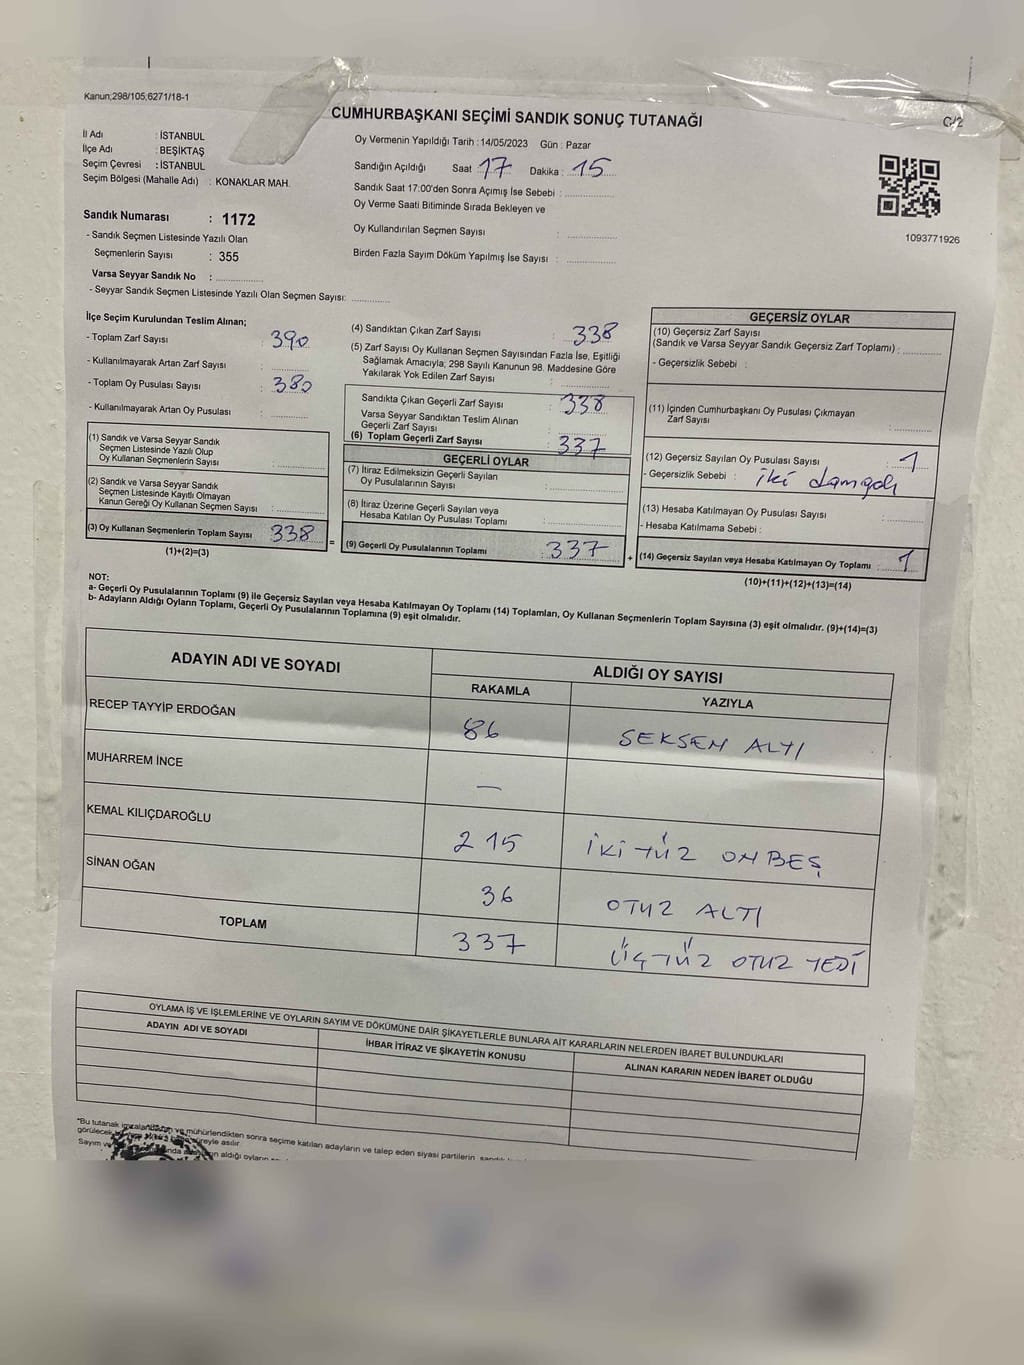 Kanun;298/105,6271/18-1
CUMHURBAŞKANI SEÇİMİ SANDIK SONUÇ TUTANAĞI
C/2
İl Adı : İSTANBUL
İlçe Adı : BEŞİKTAŞ
Seçim Çevresi : İSTANBUL
Seçim Bölgesi (Mahalle Adı) : KONAKLAR MAH.
Oy Vermenin Yapıldığı Tarih :14/05/2023 Gün : Pazar
Sandığın Açıldığı Saat 17 Dakika : 15
Sandık Saat 17:00'den Sonra Açımış İse Sebebi :
Oy Verme Saati Bitiminde Sırada Bekleyen ve
Oy Kullandırılan Seçmen Sayısı :
Birden Fazla Sayım Döküm Yapılmış İse Sayısı :
1093771926
Sandık Numarası : 1172
- Sandık Seçmen Listesinde Yazılı Olan
Seçmenlerin Sayısı : 355
Varsa Seyyar Sandık No :
- Seyyar Sandık Seçmen Listesinde Yazılı Olan Seçmen Sayısı:
İlçe Seçim Kurulundan Teslim Alınan;
- Toplam Zarf Sayısı : 390
- Kullanılmayarak Artan Zarf Sayısı :
- Toplam Oy Pusulası Sayısı : 380
- Kullanılmayarak Artan Oy Pusulası :
(1) Sandık ve Varsa Seyyar Sandık
Seçmen Listesinde Yazılı Olup
Oy Kullanan Seçmenlerin Sayısı :
(2) Sandık ve Varsa Seyyar Sandık
Seçmen Listesinde Kayıtlı Olmayan
Kanun Gereği Oy Kullanan Seçmen Sayısı :
(3) Oy Kullanan Seçmenlerin Toplam Sayısı : 338
(1)+(2)=(3)
=
(4) Sandıktan Çıkan Zarf Sayısı : 338
(5) Zarf Sayısı Oy Kullanan Seçmen Sayısından Fazla İse, Eşitliği
Sağlamak Amacıyla; 298 Sayılı Kanunun 98. Maddesine Göre
Yakılarak Yok Edilen Zarf Sayısı :
Sandıkta Çıkan Geçerli Zarf Sayısı : 338
Varsa Seyyar Sandıktan Teslim Alınan
Geçerli Zarf Sayısı :
(6) Toplam Geçerli Zarf Sayısı : 337
GEÇERLİ OYLAR
(7) İtiraz Edilmeksizin Geçerli Sayılan
Oy Pusulalarının Sayısı :
(8) İtiraz Üzerine Geçerli Sayılan veya
Hesaba Katılan Oy Pusulası Toplamı :
(9) Geçerli Oy Pusulalarının Toplamı : 337
+
GEÇERSİZ OYLAR
(10) Geçersiz Zarf Sayısı
(Sandık ve Varsa Seyyar Sandık Geçersiz Zarf Toplamı) :
- Geçersizlik Sebebi :
(11) İçinden Cumhurbaşkanı Oy Pusulası Çıkmayan
Zarf Sayısı :
(12) Geçersiz Sayılan Oy Pusulası Sayısı : 1
- Geçersizlik Sebebi : iki damgalı
(13) Hesaba Katılmayan Oy Pusulası Sayısı :
- Hesaba Katılmama Sebebi :
(14) Geçersiz Sayılan veya Hesaba Katılmayan Oy Toplamı : 1
(10)+(11)+(12)+(13)=(14)
NOT:
a- Geçerli Oy Pusulalarının Toplamı (9) ile Geçersiz Sayılan veya Hesaba Katılmayan Oy Toplamı (14) Toplamları, Oy Kullanan Seçmenlerin Toplam Sayısına (3) eşit olmalıdır. (9)+(14)=(3)
b- Adayların Aldığı Oyların Toplamı, Geçerli Oy Pusulalarının Toplamına (9) eşit olmalıdır.
ADAYIN ADI VE SOYADI
ALDIĞI OY SAYISI
RAKAMLA YAZIYLA
RECEP TAYYİP ERDOĞAN 86 SEKSEN ALTI
MUHARREM İNCE —
KEMAL KILIÇDAROĞLU 215 İKİ YÜZ ON BEŞ
SİNAN OĞAN 36 OTUZ ALTI
TOPLAM 337 ÜÇ YÜZ OTUZ YEDİ
OYLAMA İŞ VE İŞLEMLERİNE VE OYLARIN SAYIM VE DÖKÜMÜNE DAİR ŞİKAYETLERLE BUNLARA AİT KARARLARIN NELERDEN İBARET BULUNDUKLARI
ADAYIN ADI VE SOYADI
İHBAR İTİRAZ VE ŞİKAYETİN KONUSU
ALINAN KARARIN NEDEN İBARET OLDUĞU
"Bu tutanak ve mühürlendikten sonra seçime katılan adayların ve talep eden siyasi partilerin
görülecek süreyle asılır.
Sayım ve aldığı oyların